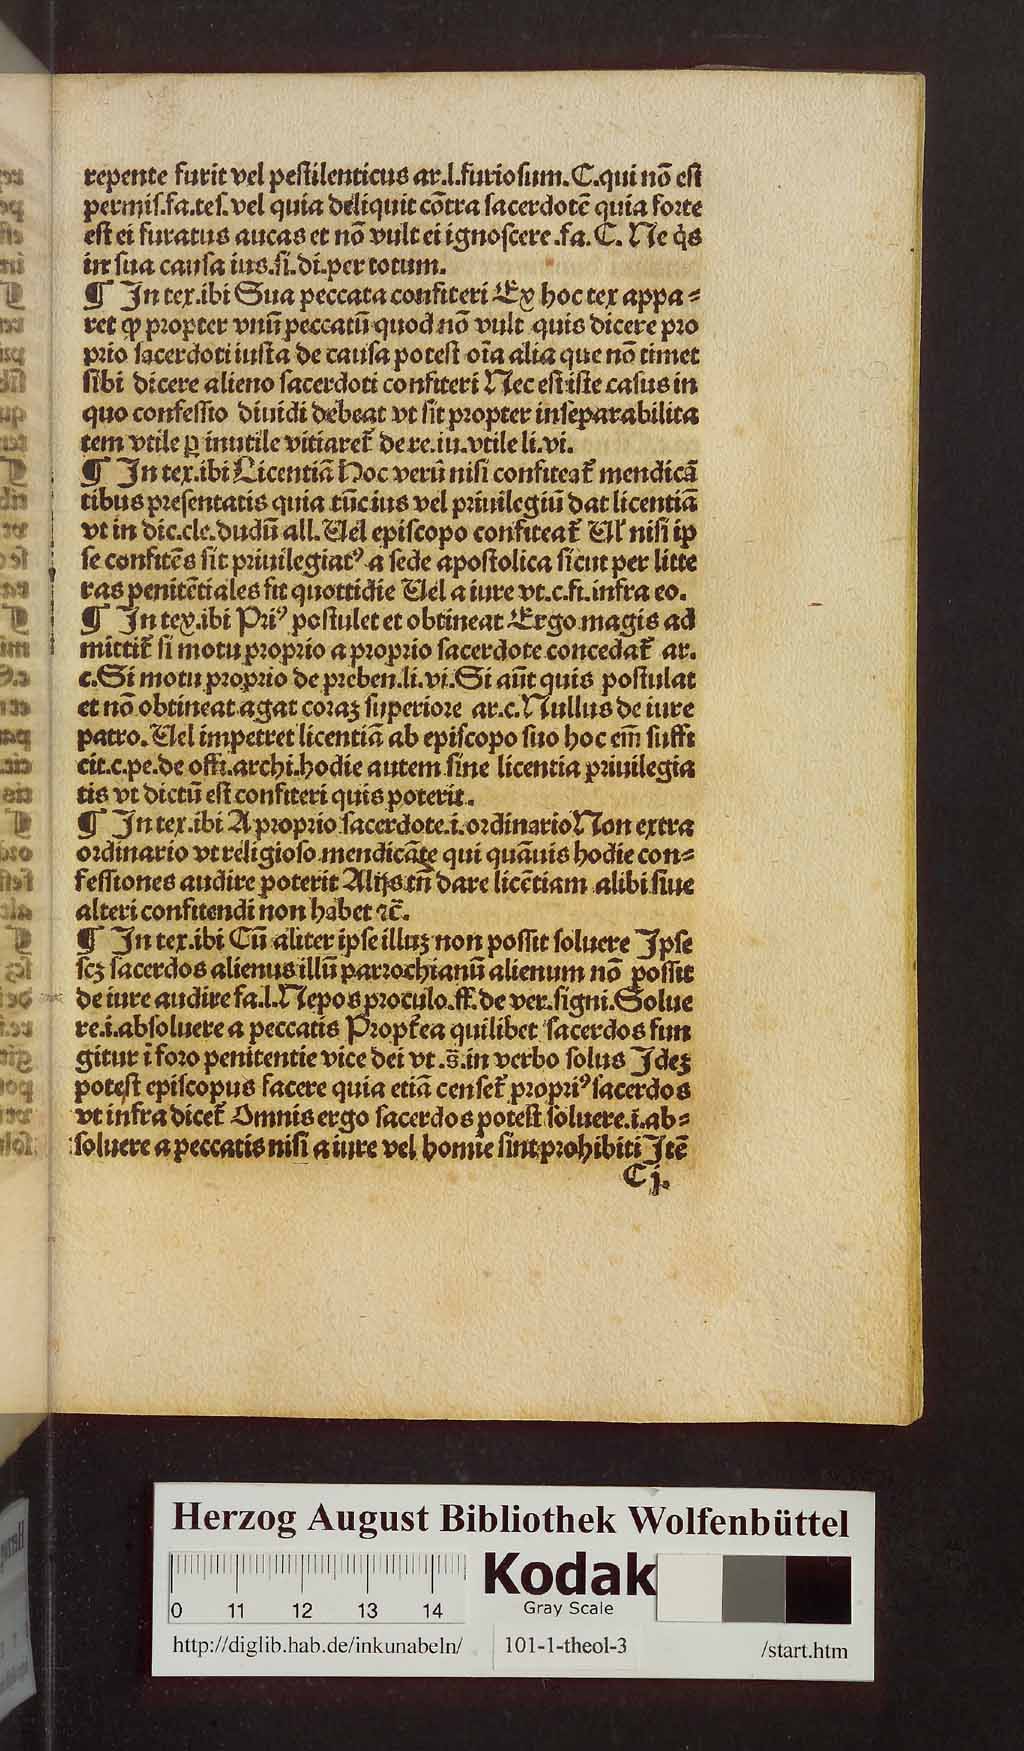 repente furit vel pestilenticus ar.l.furiosum.C.qui nō est
permis.fa.tes.vel quia deliquit cōtra sacerdotē quia forte
est ei furatus aucas et nō vult ei ignoscere.fa.C. Ne q̇s
in sua causa ius.si.di.per totum.
¶ In tex.ibi Sua peccata confiteri Ex hoc tex appa⸗
ret ꝙ propter vnū peccatū quod nō vult quis dicere pro
prio sacerdoti iusta de causa potest oīa alia que nō timet
sibi dicere alieno sacerdoti confiteri Nec est iste casus in
quo confessio diuidi debeat vt sit propter inseparabilita
tem vtile ꝑ inutile vitiaret᷑ de re.iu.vtile li.vi.
¶ In tex.ibi Licentiā Hoc verū nisi confiteat᷑ mendicā
tibus presentatis quia tūc ius vel priuilegiū dat licentiā
vt in dic.cle.dudū all. Uel episcopo confiteat᷑ Ul' nisi ip
se confitēs sit priuilegiatꝰ a sede apostolica sicut per litte
ras penitētiales fit quottidie Uel a iure vt.c.fi.infra eo.
¶ In tex.ibi Priꝰ postulet et obtineat Ergo magis ad
mittit᷑ si motu proprio a proprio sacerdote concedat᷑ ar.
c.Si motu proprio de preben.li.vi.Si aūt quis postulat
et nō obtineat agat coraꝫ superiore ar.c.Nullus de iure
patro.Uel impetret licentiā ab episcopo suo hoc em̄ suffi
cit.c.pe.de offi.archi.hodie autem sine licentia priuilegia
tis vt dictū est confiteri quis poterit.
¶ In tex.ibi A proprio sacerdote.i.ordinario Non extra
ordinario vt religioso mendicāte qui quāuis hodie con⸗
fessiones audire poterit Alijs tn̄ dare licētiam alibi siue
alteri confitendi non habet ⁊c̄.
¶ In tex.ibi Cū aliter ipse illuꝫ non possit soluere Ipse
scꝫ sacerdos alienus illū parrochianū alienum nō possit
de iure audire fa.l.Nepos proculo.ff.de ver.signi.Solue
re.i.absoluere a peccatis Propt᷑ea quilibet sacerdos fun
gitur ī foro penitentie vice dei vt.s̄.in verbo solus Ideꝫ
potest episcopus facere quia etiā censet᷑ propriꝰ sacerdos
vt infra dicet᷑ Omnis ergo sacerdos potest soluere.i.ab⸗
soluere a peccatis nisi a iure vel homīe sint prohibiti Itē
C j.
Herzog August Bibliothek Wolfenbüttel
0 11 12 13 14
Kodak
Gray Scale
http://diglib.hab.de/inkunabeln/ 101-1-theol-3 /start.htm